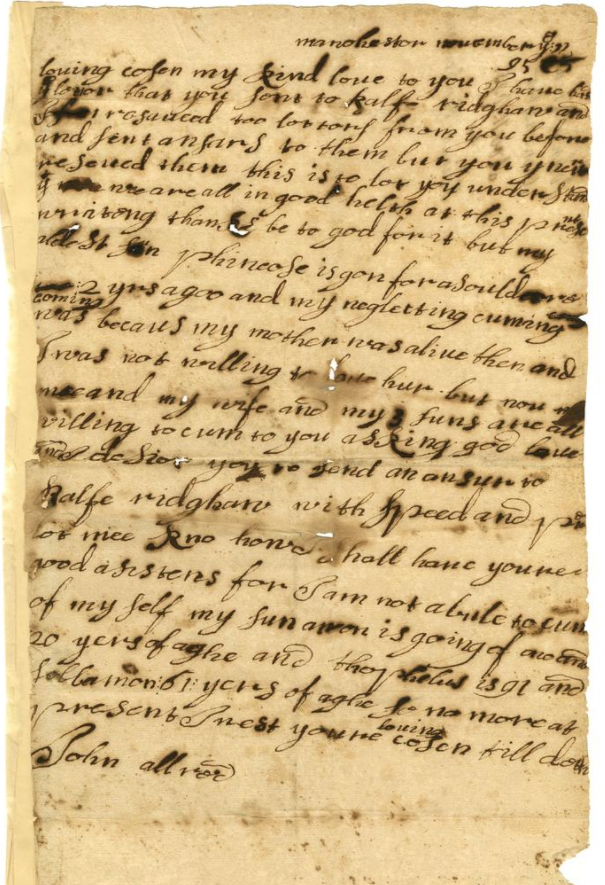 manchester november ye 9
loving cosen my kind love to you I have
letor that you sent to Ralfe ridghaw and
I resaved too lortors from you before
and sent ansars to them but you
resaved them this is to let you understand
we are all in good helth at this present
writeng thanks be to god for it but my
aldest sun phineose is gon for a souldeor
2 yrs agoo and my neglecting cuming
was becaus my mother was alive then and
I was not willing to leave hur but now
mee and my wife and my 3 suns are all
willing to cum to you asking god leave
and I desior you to send an ansyr to
Ralfe ridghaw with speed and
let mee kno how I shall have youre
good asistens for I am not abule to cum
of my self my sun aron is going of
20 yers of aghe and thophelus is 91 and
sollamon 61 yers of aghe so no more at
present I rest youre loving cosen till
John allrod